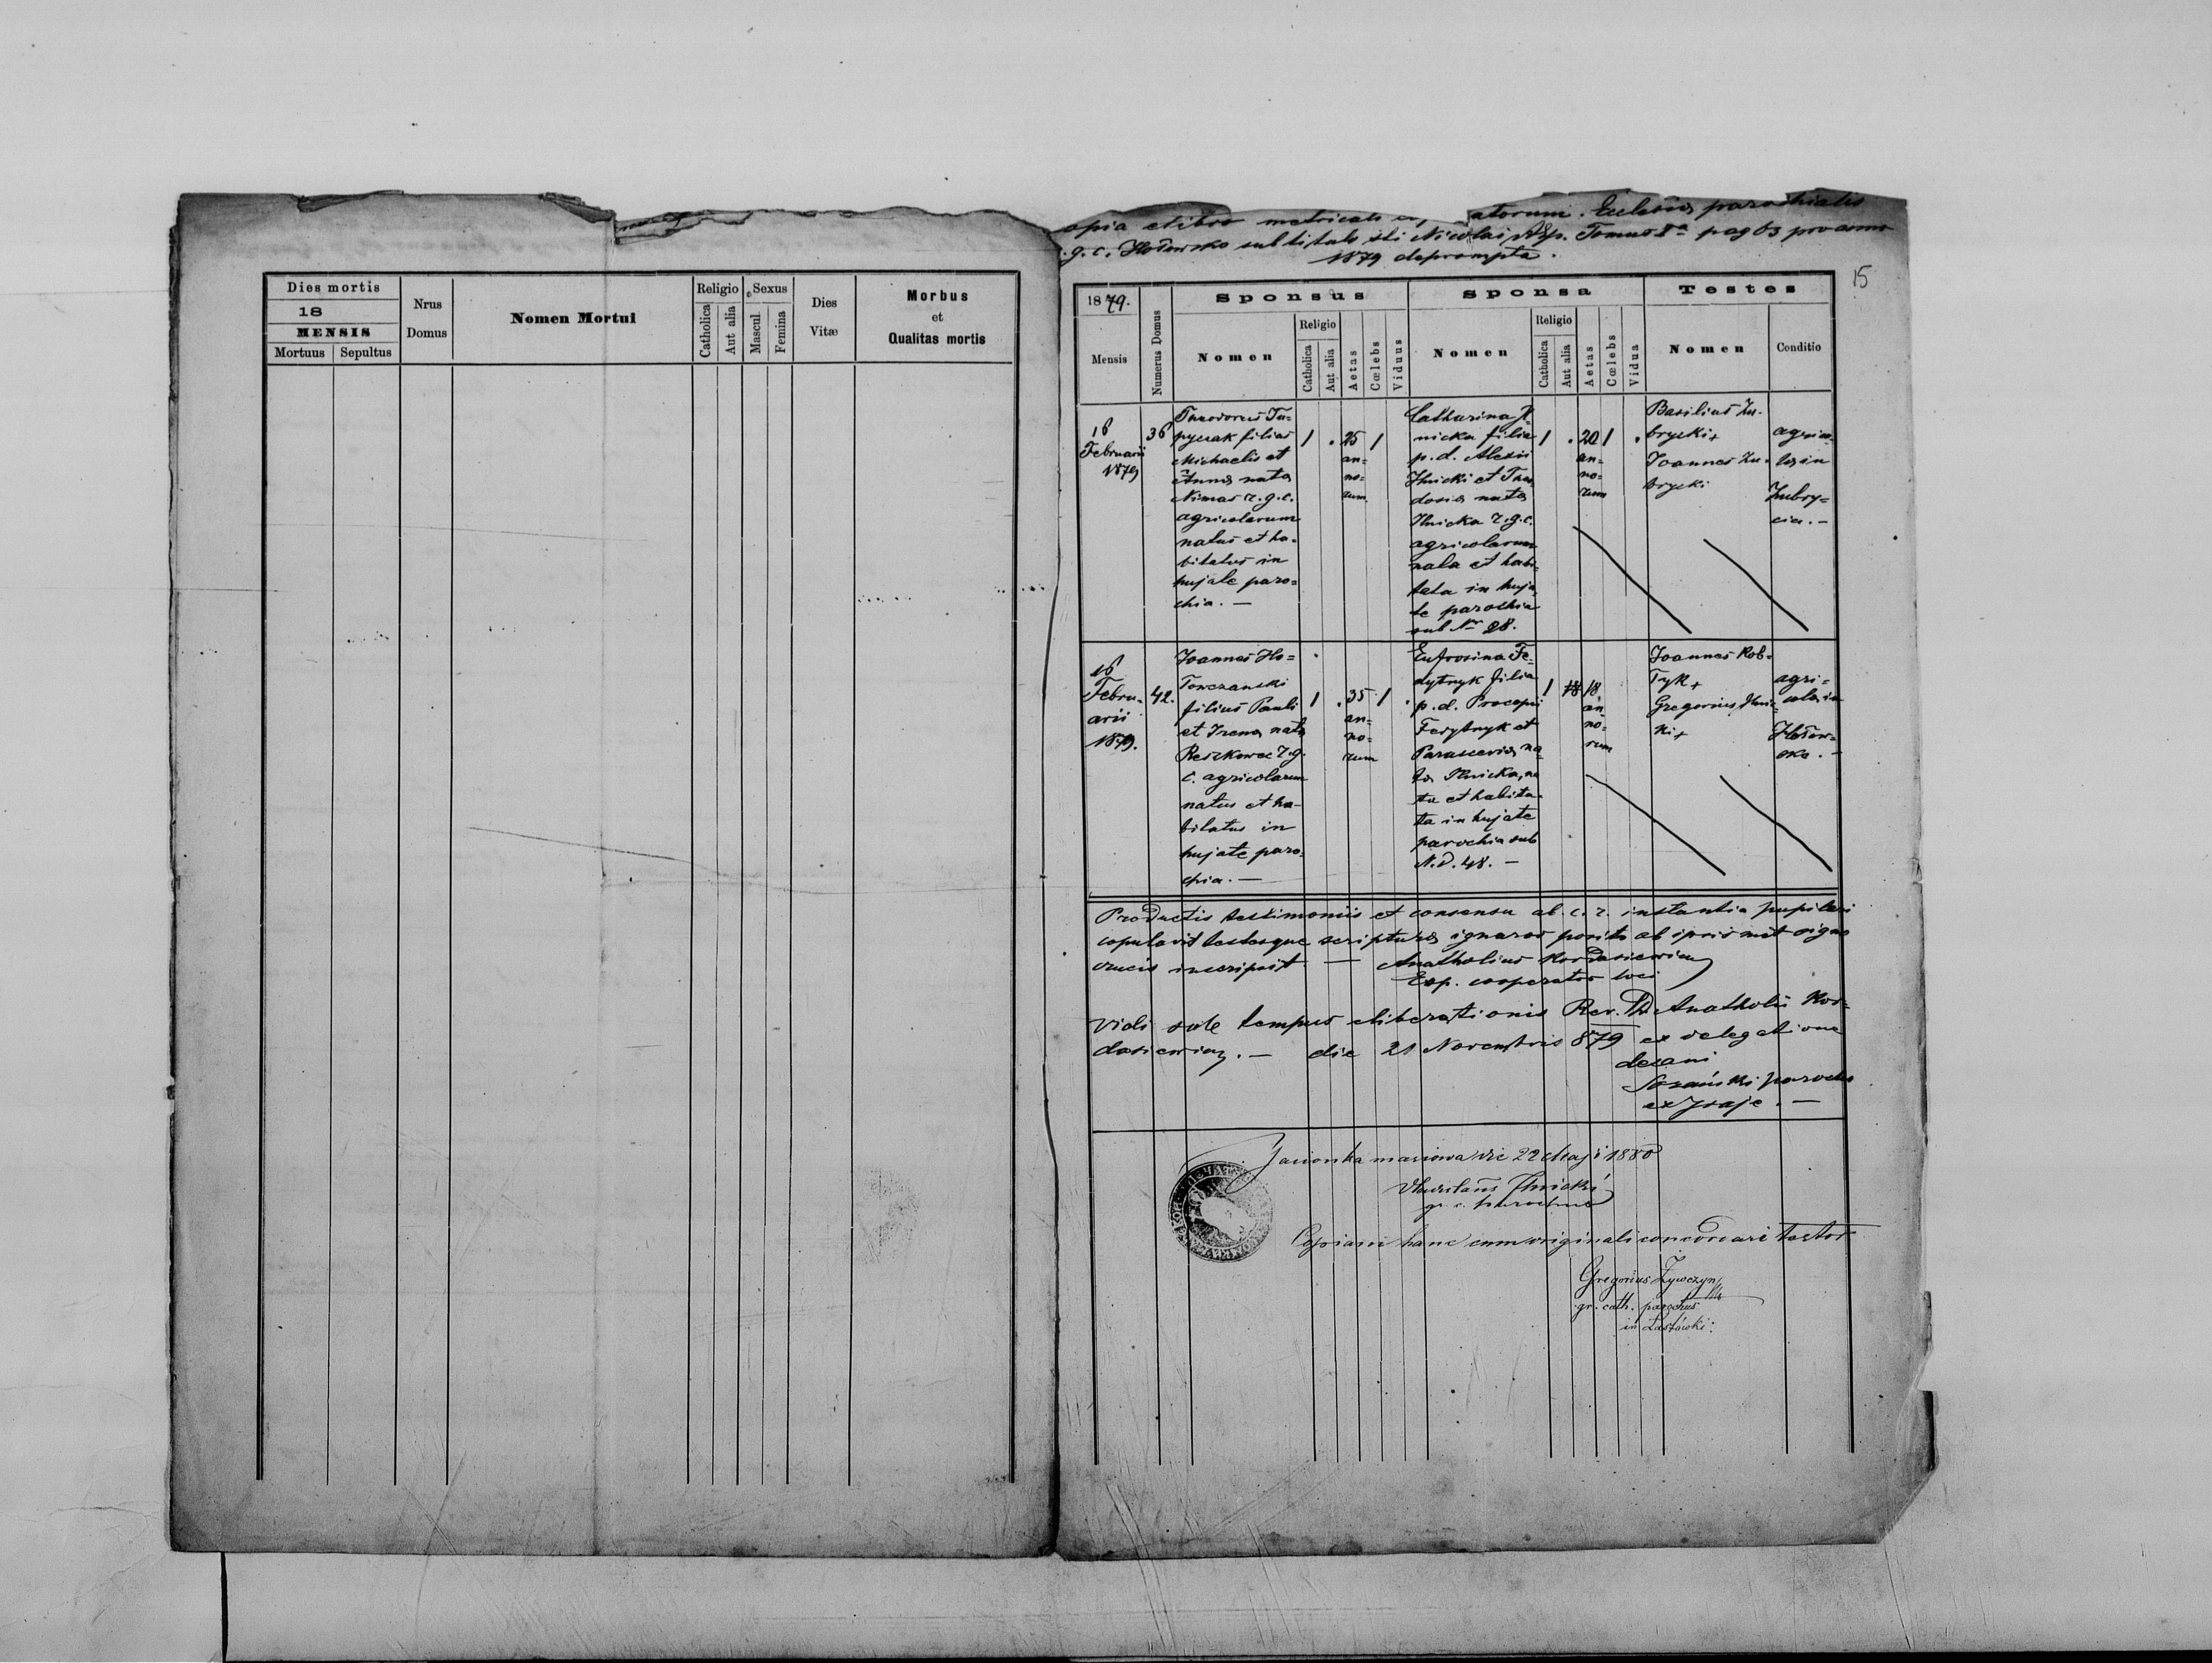 Dies mortis
18
MENSIS
Mortuus Sepultus
Nrus
Domus
Nomen Mortui
Religio
Catholica
Aut alia
Sexus
Mascul
Femina
Dies
Vitæ
Morbus
et
Qualitas mortis
opia e libro metricali atorum. Eclesiæ parochialis
g. c. Hołowsko sub titulo sti Nicolai Aep. Tomus Ia pag 63 pro anno
1879 deprompta.
15
1879.
Mensis
Numerus Domus
Sponsus
Nomen
Religio
Catholica
Aut alia
Aetas
Cœlebs
Viduus
Sponsa
Nomen
Religio
Catholica
Aut alia
Aetas
Cœlebs
Vidua
Testes
Nomen
Conditio
16
Februarii
1879
36
Theodorus Tu=
filius
Michaelis et
Anna nata
Nimas r. g. c.
agricolarum
natus et ha=
bitatus in
hujate paro=
chia. —
1
25
an=
no=
rum
1
Catharina Il
nicka filia
p. d. Alexii
Ilnicki et Theo
dosia nata
Ilnicka r. g. c.
agricolarum
nata et habi=
tata in huja
te parochia
sub Nr 28.
1
20
an=
no=
rum
1
Basilius Zu=
brycki +
Joannes Zu=
brycki
agrico=
læ in
Zubry=
cia. —
16
Febru=
arii
1879.
42.
Joannes Ho=
Towczanski
filius Pauli
et Irena nata
Reszkowec r. g.
c. agricolarum
natus et ha-
bitatus in
hujate paro=
chia. —
1
35
an=
no=
rum
1
Eufrosina Fe=
dytnyk filia
p. d. Procopii
Fedytnyk et
Parascevia na
ta Ilnicka, na
ta et habita=
ta in hujate
parochia sub
N. d. 48. —
1
18
an=
no=
rum
Joannes Kob=
Tyk +
Gregorius Ilnic=
ki +
agri=
colæ in
Hołow=
sko. —
Productis testimoniis et consensu ab c. r. instantia pupilari
copulavit testesque scripturæ ignaros posito ab ipsismet signo
crucis inscripsit. — Anatholius Kordasiewicz
Exp. cooperator loci
Vidi sole tempus eliberationis Rev. D. Anatholii Kor=
dasiewicz. — die 21 Novembris 879 ex delegatione
decani
Sozański parochus
ex Jsaje. —
Jasionka masiowa die 22 Maji 1880
Ilnicki
gr. c. parochus
Copiam hanc cum originali concordari testor
Gregorius Żywczyn
gr. cath. parochus
in Łastówki.